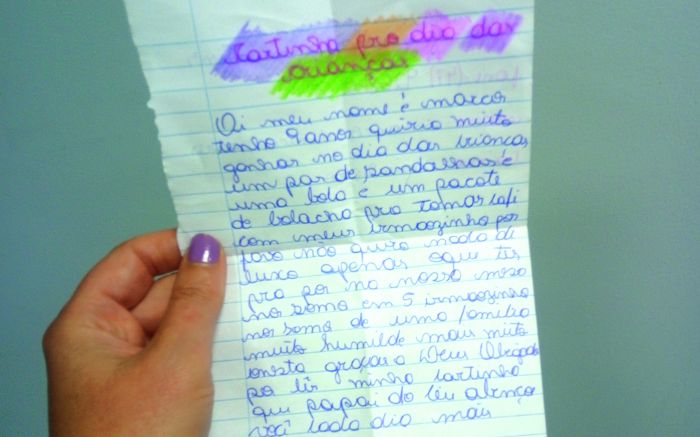 Cartinha pro dia das
crianças
Oi meu nome é marcos
tenho 9 anos quiria muito
ganhar no dia das crianças
um par de sandalhas e
uma bola e um pacote
de bolacha pra tomar café
com meus irmaozinho por
favo não quro nada di
luxo apenas oque tus
pra por na nossa mesa
nos somo em 5 irmaozinho
nos somo de uma familia
muito humilde mais muito
onesta graças a Deus Obrigado
por lir minha cartinha
que papai do céu abençoe
você todo dia mais